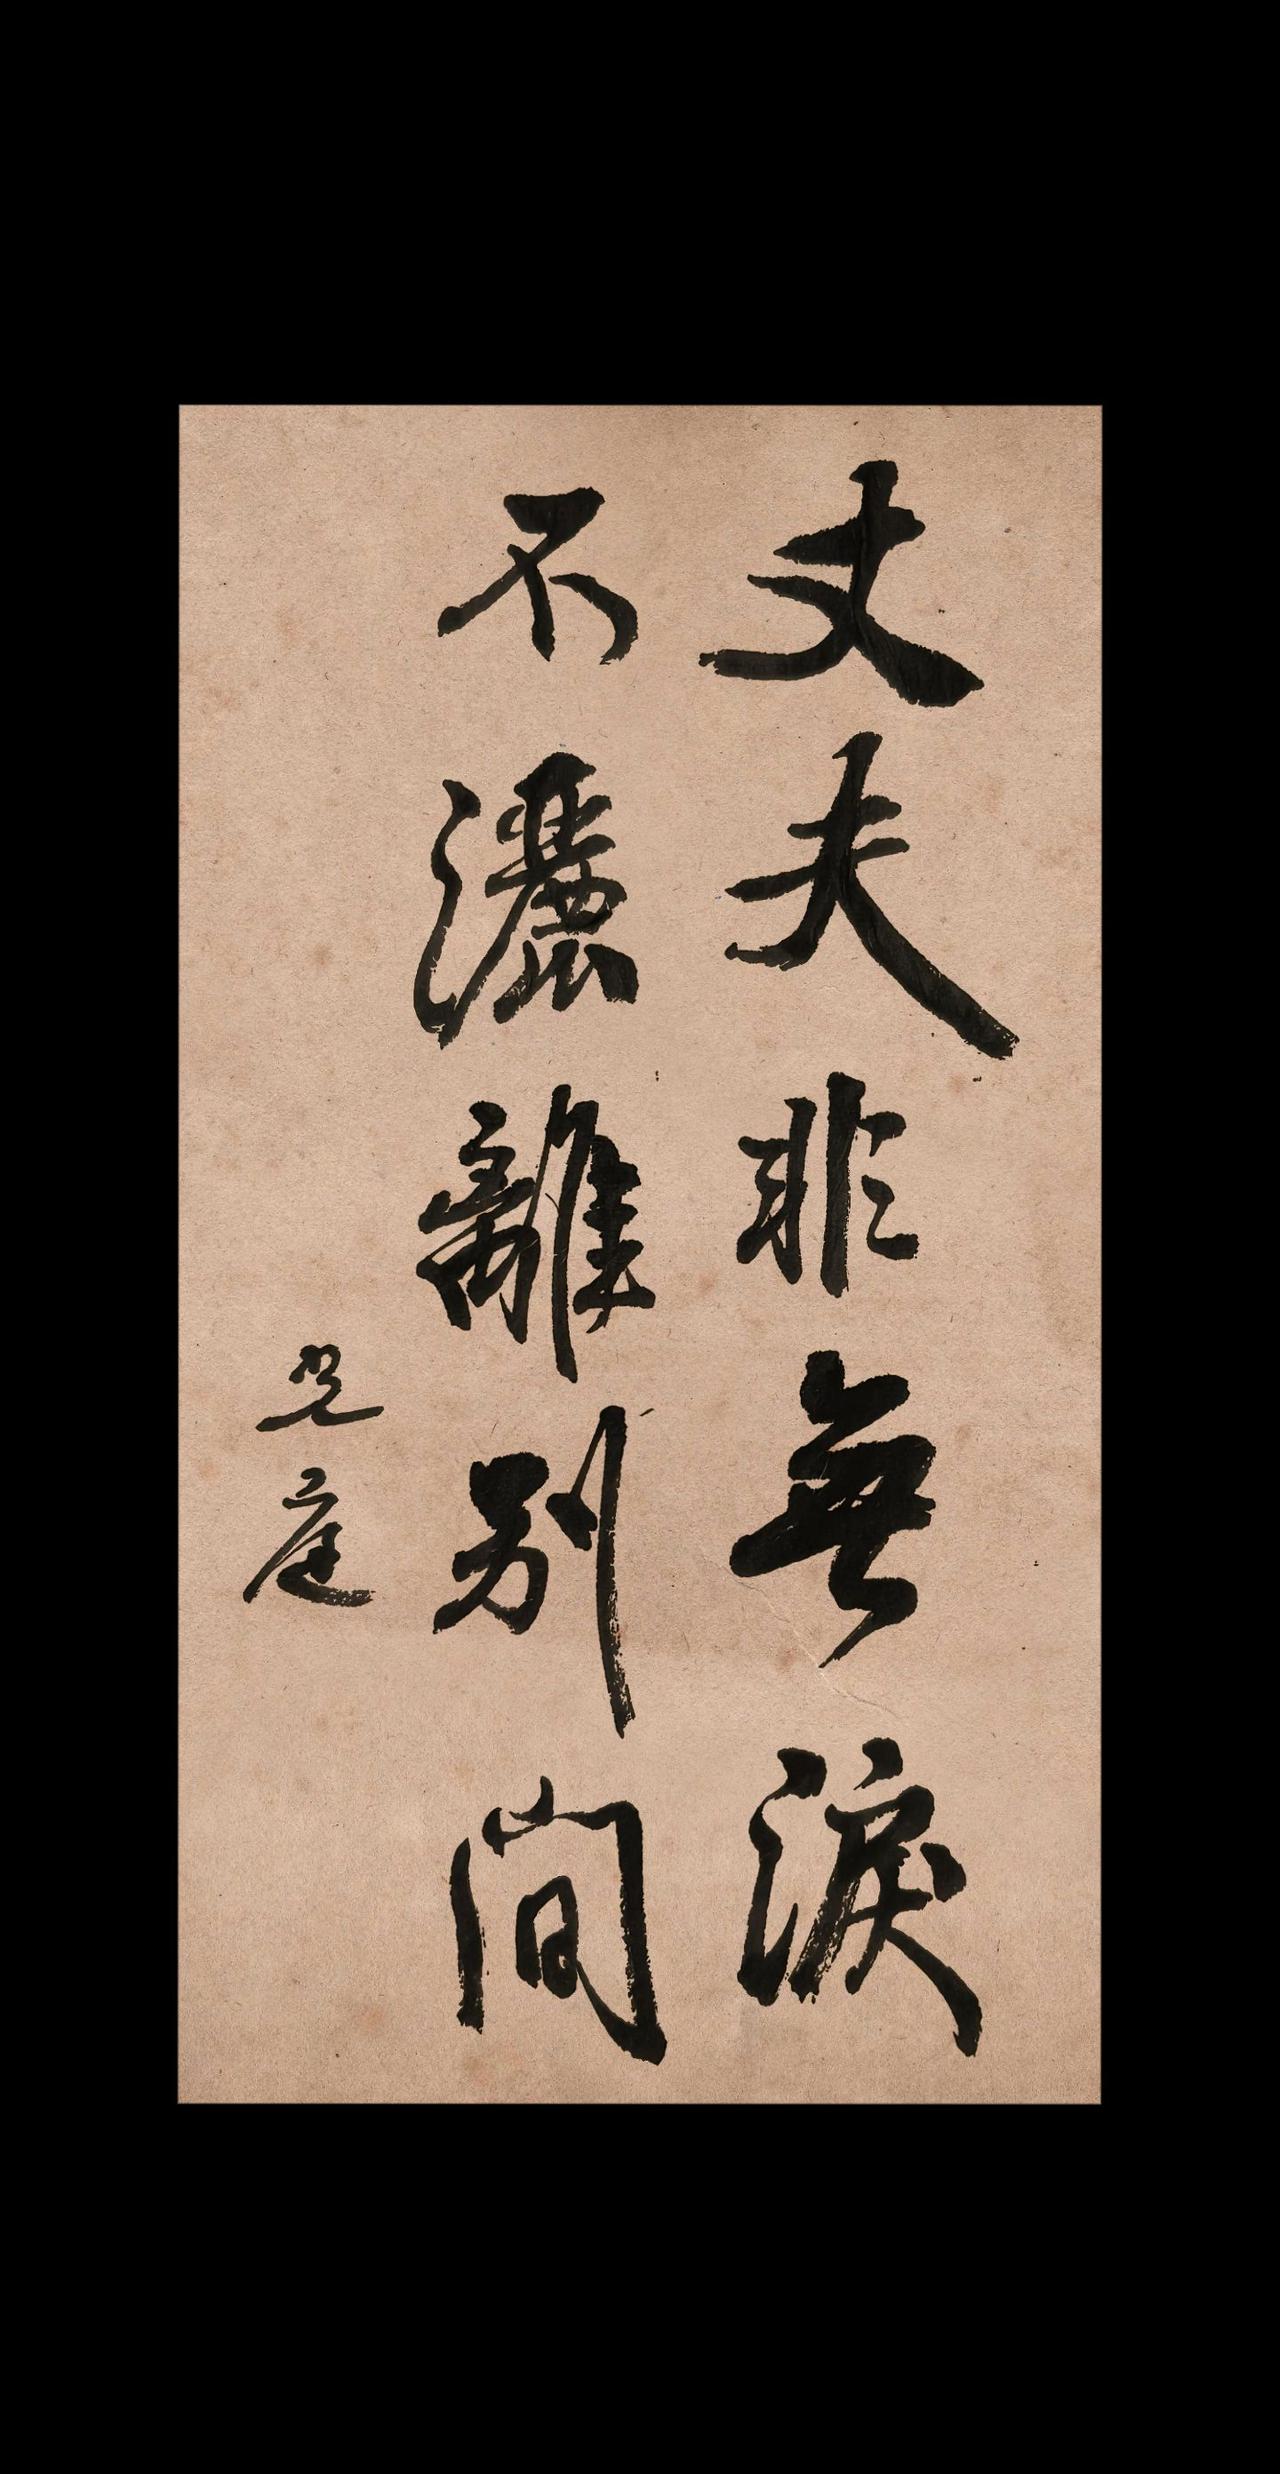 丈夫非無淚
不灑離別間
光庭